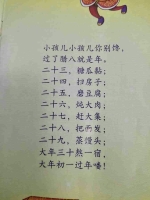 小孩儿小孩儿你别馋，
过了腊八就是年。
二十三，糖瓜黏；
二十四，扫房子；
二十五，磨豆腐；
二十六，炖大肉；
二十七，赶大集；
二十八，把面发；
二十九，蒸馒头；
大年三十熬一宿，
大年初一过年喽！